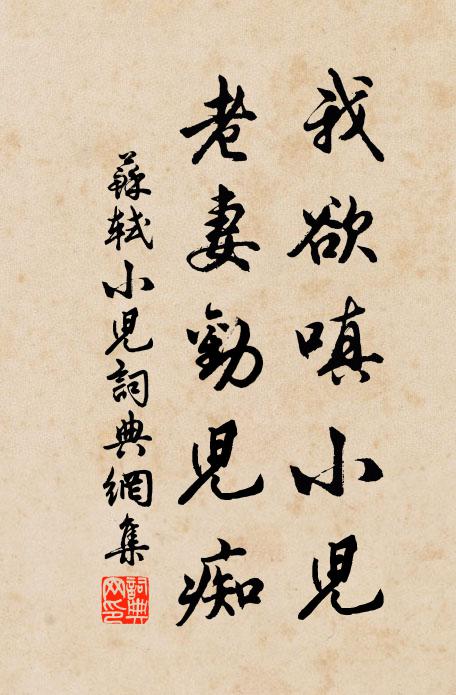 我欲嗔小児
老妻勸児痴
蘇軾小児詞典網集
詞典網印